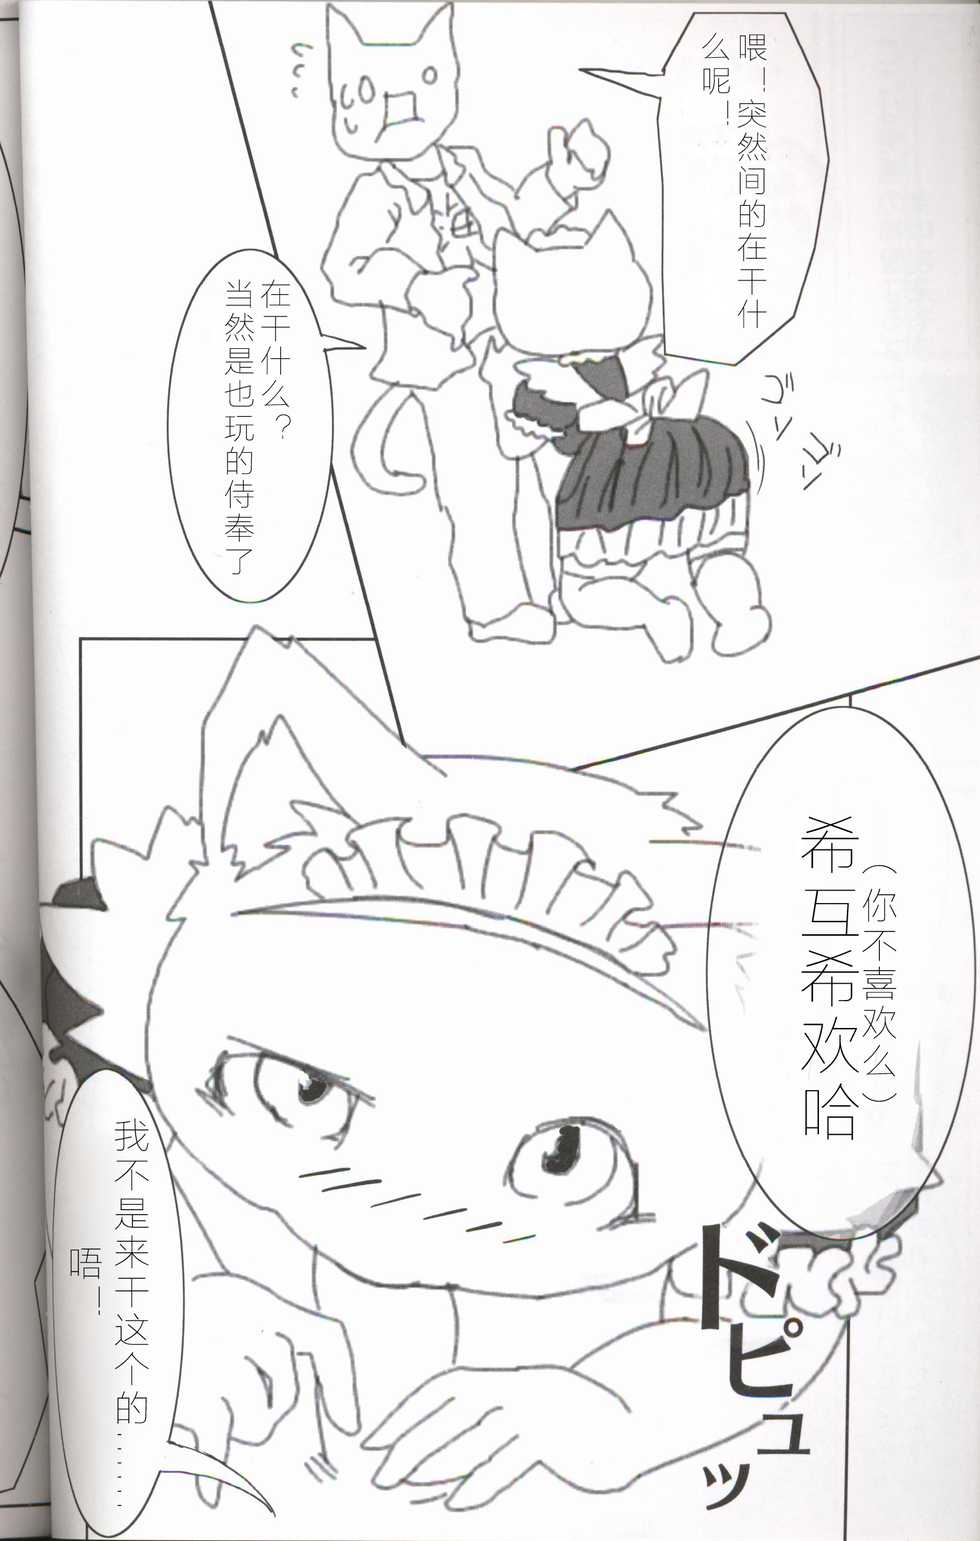 喂！突然间的在干什
么呢！
ゴ
ソ
ゴ
ソ
在干什么？
当然是也玩的侍奉了
（你不喜欢么）
希互希欢哈
ドピュッ
我不是来干这个的……
唔！